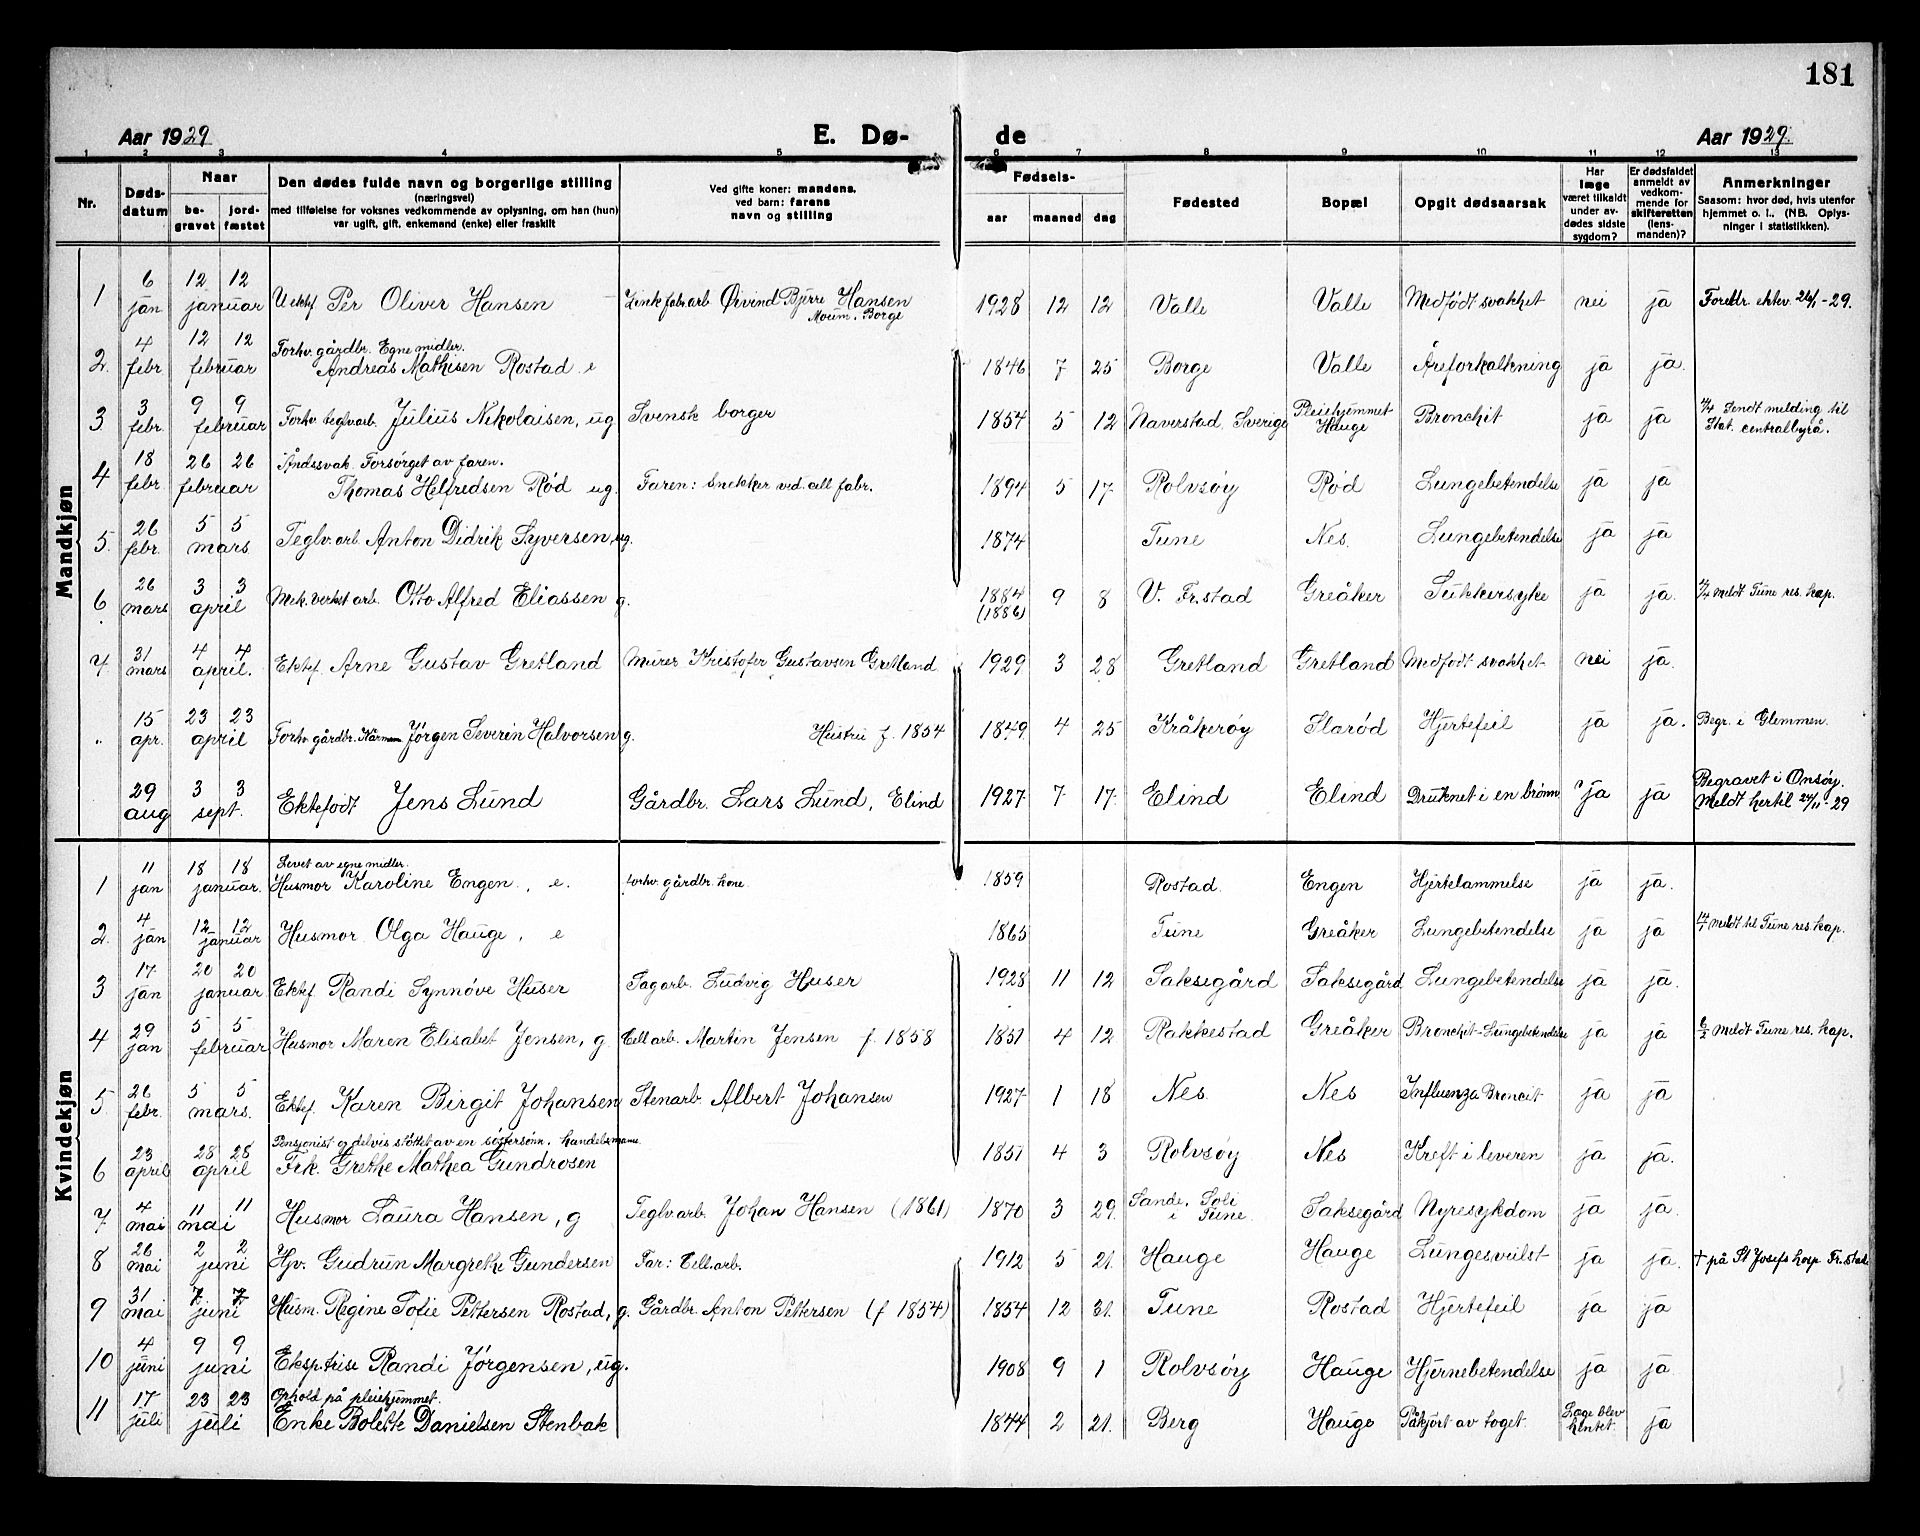 181
Aar 1929 E. Dø- de Aar 1929.
1 2 3 4 5 6 7 8 9 10 11 12 13
Nr. Døds-datum Naar be-gravet jord-fæstet Den dødes fulde navn og borgerlige stilling (næringsvei) med tilføielse for voksnes vedkommende av oplysning, om han (hun) var ugift, gift, enkemand (enke) eller fraskilt Ved gifte koner: mandens, ved barn: farens navn og stilling Fødsels- aar maaned dag Fødested Bopæl Opgit dødsaarsak Har læge været tilkaldt under av-dødes sidste sygdom? Er dødsfaldet anmeldt av vedkom-mende for skifteretten (lens-manden)? Anmerkninger Saasom: hvor død, hvis utenfor hjemmet o. l.. (NB. Oplys-ninger i statistikken).
Mandkjøn
1 6 jan 12 12 januar Uektef Per Oliver Hansen Zinkfabr.arb. Øivind Bjerre Hansen Moum. Borge 1928 12 12 Valle Valle Medfødt svakhet nei ja Foreldr. ektev. 26/1-29.
2. 4 febr. 12 12 februar Forhv. gårdbr. Egne midler. Andreas Mathisen Rostad e 1846 7 25 Borge Valle Åreforkalkning ja ja.
3. 3 febr. 9 9 februar Forhv. teglv.arb. Julius Nikolaisen, ug Svensk borger 1854 5 12 Naverstad, Sverige Pleiehjemmet Hauge Bronchit ja ja 4/4 Sendt melding til Stat. centralbyrå.
4 18 febr. 26 26 februar Åndssvak. Forsørget av faren. Thomas Helfredsen Rød ug. Faren: Snekker ved cell fabr. 1894 5 17. Rolvsøy Rød Lungebetendelse ja ja
5. 26 febr. 5 5 mars Teglv.arb. Anton Didrik Syversen, ug. 1874 Tune Nes. Lungebetendelse ja ja
6. 26 mars 3 3 april Mek. verkst arb. Otto Alfred Eliassen g. 1884 (1886) 9 8 V. Fr.stad Greåker Sukkersyke ja ja. 4/4 meldt Tune res. kap.
7 31 mars 4 4 april. Ektef. Arne Gustav Gretland Murer Kristofer Gustavsen Gretland 1929 3 28 Gretland Gretland Medfødt svakhet nei ja.
" 15 apr. 23 23 april Forhv. gårdbr. Kårmann Jørgen Severin Halvorsen g. Hustru f. 1854 1849 4 25 Kråkerøy Slarød Hjertefeil ja ja. Begr. i Glemmen.
29 aug 3 3 sept. Ektefødt Jens Lund Gårdbr. Lars Lund, Elind 1927 7 17. Elind Elind Druknet i en brønn ? ja ja Begravet i Onsøy. Meldt hertil 24/11-29
Kvindekjøn
1 11 jan 18 18 januar. Levet av egne midler. Husmor Karoline Engen, e. forhv. gårdbr. kone 1859 Rostad. Engen Hjertelammelse ja ja.
2. 4 jan 12 12 januar Husmor Olga Hauge, e 1865 Tune Greåker Lungebetendelse ja ja 14/1 meldt til Tune res. kap.
3 17 jan 20 20 januar Ektef Randi Synnøve Huser Sagarb. Ludvig Huser 1928 11 12 Saksegård Saksegård Lungebetendelse ja ja.
4 29 jan 5 5 februar Husmor Maren Elisabet Jensen, g. Cell arb. Martin Jensen f. 1858 1851 4 12 Rakkestad Greåker Bronchit-Lungebetendelse ja ja 6/2 meldt Tune res. kap.
5. 26 febr. 5 5 mars. Ektef. Karen Birgit Johansen Stenarb Albert Johansen 1927 1 18 Nes. Nes Influenza Broncit ja ja
6 23 april 28 28 april Pensjonist og delvis støttet av en søstersønn. handelsmann. Frk. Grethe Mathea Gundrosen 1851 4 3 Rolvsøy Nes Kreft i leveren ja ja.
7 4 mai 11 11 mai Husmor Laura Hansen, g Teglv.arb. Johan Hansen (1861) 1870 3 29. Sande, Soli i Tune. Saksegård Nyresykdom ja ja.
8 26 mai 2 2 juni Hjv. Gudrun Margrethe Gundersen Far: Cell.arb. 1912 5 21. Hauge Hauge Lungesvulst ja ja. † på St Josefs hosp Fr.stad
9 31 mai 7 7 juni Husm. Regine Sofie Pettersen Rostad, g. Gårdbr. Anton Pettersen (f 1854) 1854 12 31. Tune Rostad Hjertefeil ja ja
10 4 juni 9 9 juni Eksp.trise Randi Jørgensen, ug. 1908 9 1 Rolvsøy Hauge Hjernebetendelse ja ja
11 17 juli 23 23 juli Ophold på pleiehjemmet. Enke Bolette Danielsen Stenbak 1844 2 21. Berg Hauge Påkjørt av toget. Læge blev hentet. ja